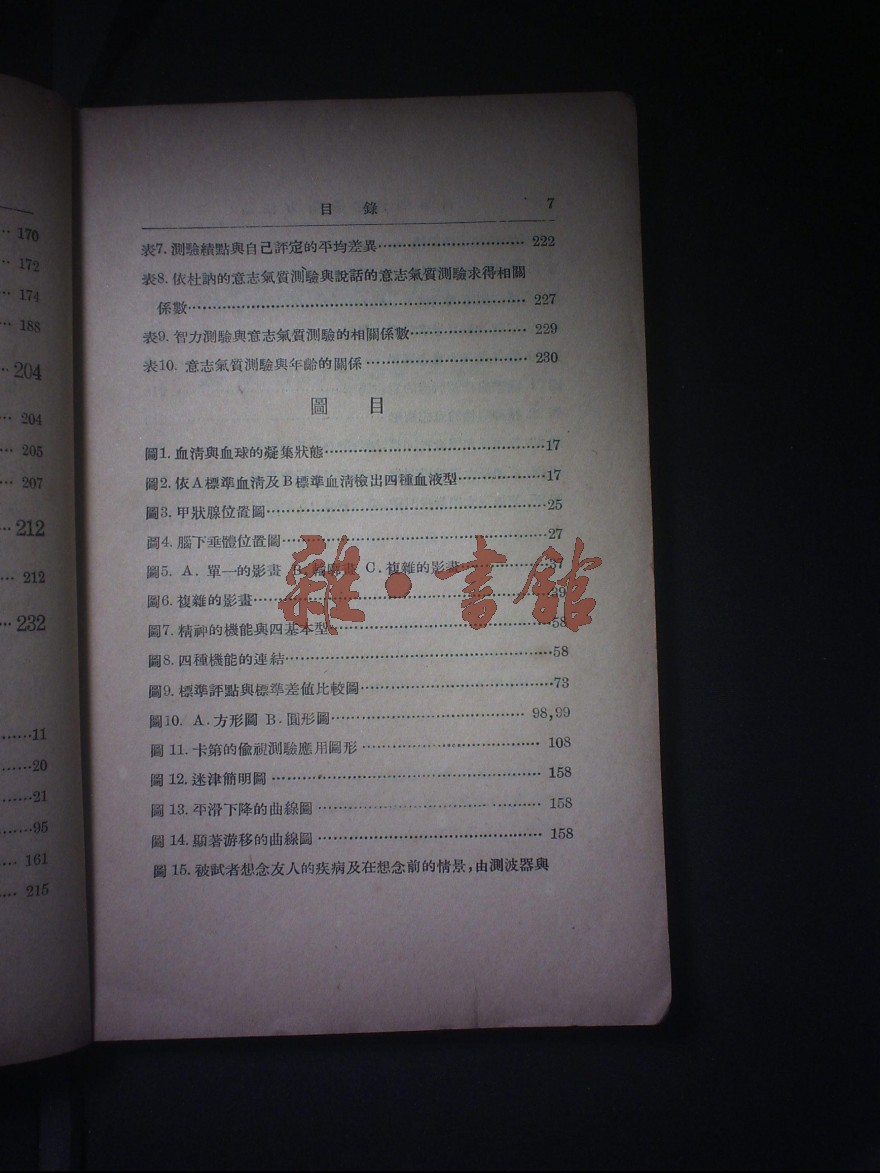 170
172
174
188
204
204
205
207
212
212
232
11
20
21
95
161
215
目 錄 7
表7. 測驗績點與自己評定的平均差異 222
表8. 依杜訥的意志氣質測驗與說話的意志氣質測驗求得相關
係數 227
表9. 智力測驗與意志氣質測驗的相關係數 229
表10. 意志氣質測驗與年齡的關係 230
圖 目
圖1. 血清與血球的凝集狀態 17
圖2. 依A標準血清及B標準血清檢出四種血液型 17
圖3. 甲狀腺位置圖 25
圖4. 腦下垂體位置圖 27
圖5. A. 單一的影畫 B. C. 複雜的影畫 37
圖6. 複雜的影畫 39
圖7. 精神的機能與四基本型 58
圖8. 四種機能的連結 58
圖9. 標準評點與標準差值比較圖 73
圖10. A. 方形圖 B. 圓形圖 98,99
圖 11. 卡第的偸視測驗應用圖形 108
圖 12. 迷津簡明圖 158
圖 13. 平滑下降的曲線圖 158
圖 14. 顯著游移的曲線圖 158
圖 15. 被試者想念友人的疾病及在想念前的情景,由測波器與
雜·書館